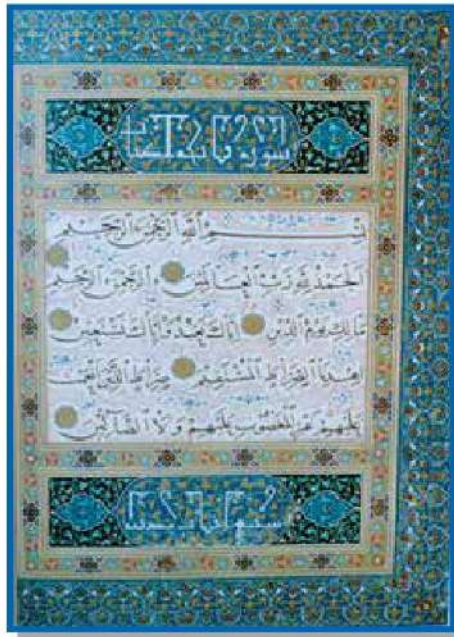 سورة فاتحة الكتاب
بِسْمِ اللهِ الرَّحْمٰنِ الرَّحِيمِ
الْحَمْدُ لِلّٰهِ رَبِّ الْعَالَمِينَ الرَّحْمٰنِ الرَّحِيمِ
مَالِكِ يَوْمِ الدِّينِ اِيَّاكَ نَعْبُدُ وَاِيَّاكَ نَسْتَعِينُ
اِهْدِنَا الصِّرَاطَ الْمُسْتَقِيمَ صِرَاطَ الَّذِينَ اَنْعَمْتَ
عَلَيْهِمْ غَيْرِ الْمَغْضُوبِ عَلَيْهِمْ وَلَا الضَّالِّينَ
سبع آيات